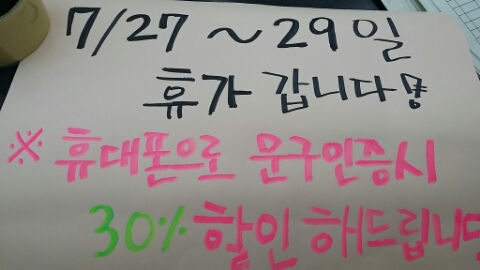 7/27 ~ 29일
휴가 갑니다
※ 휴대폰으로 문구인증시
30% 할인 해드립니다